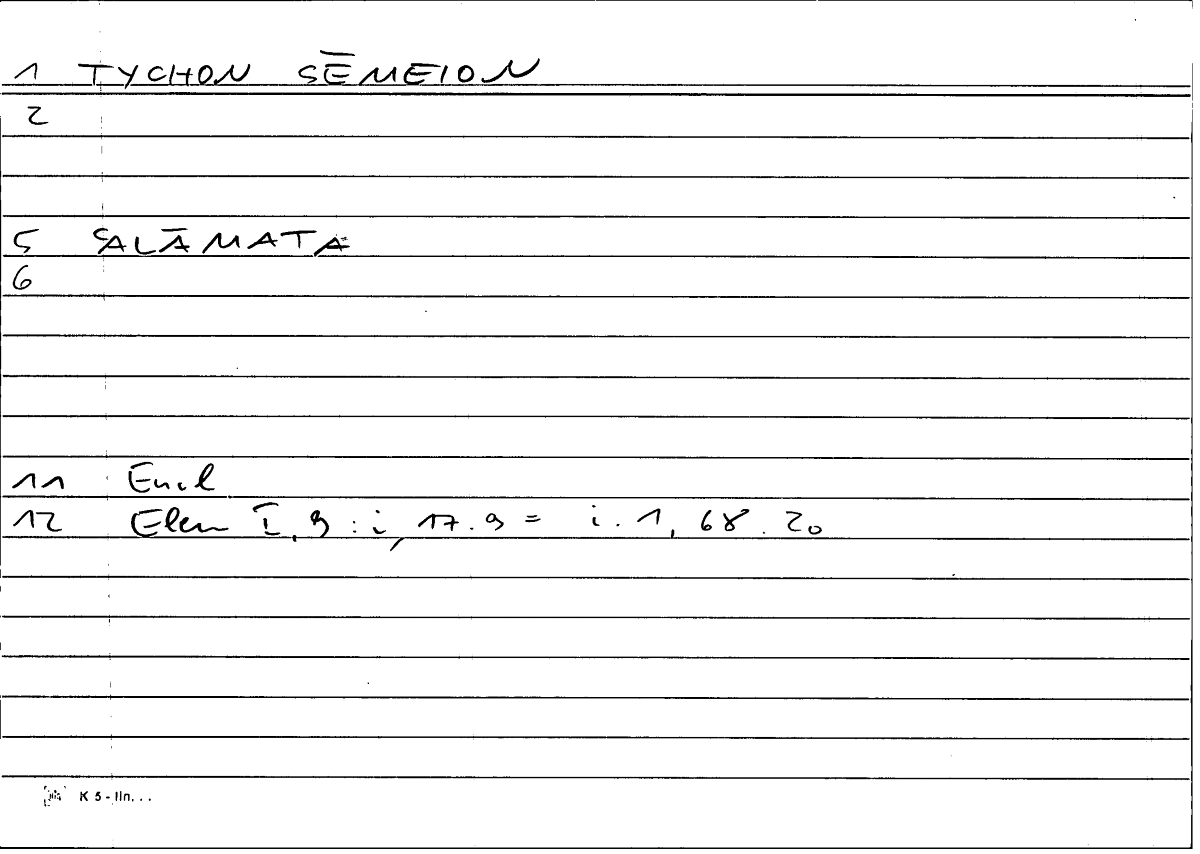 1 TYCHON SĒMEION
2
5 SALĀMATA
6
11 Eucl
12 Elem I, 9 : i, 17.9 = i. 1, 68.20
K 5 - lin...